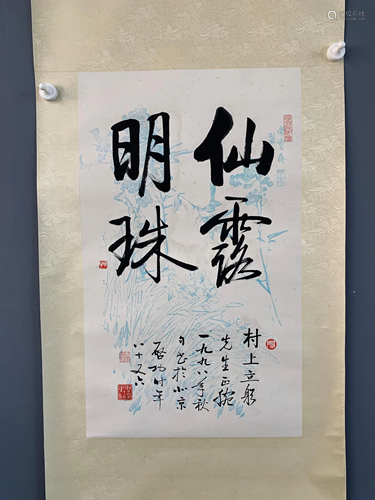 仙露
明珠
村上立躬
先生正腕
一九九八年秋
日書於北京
启功时年
八十又六